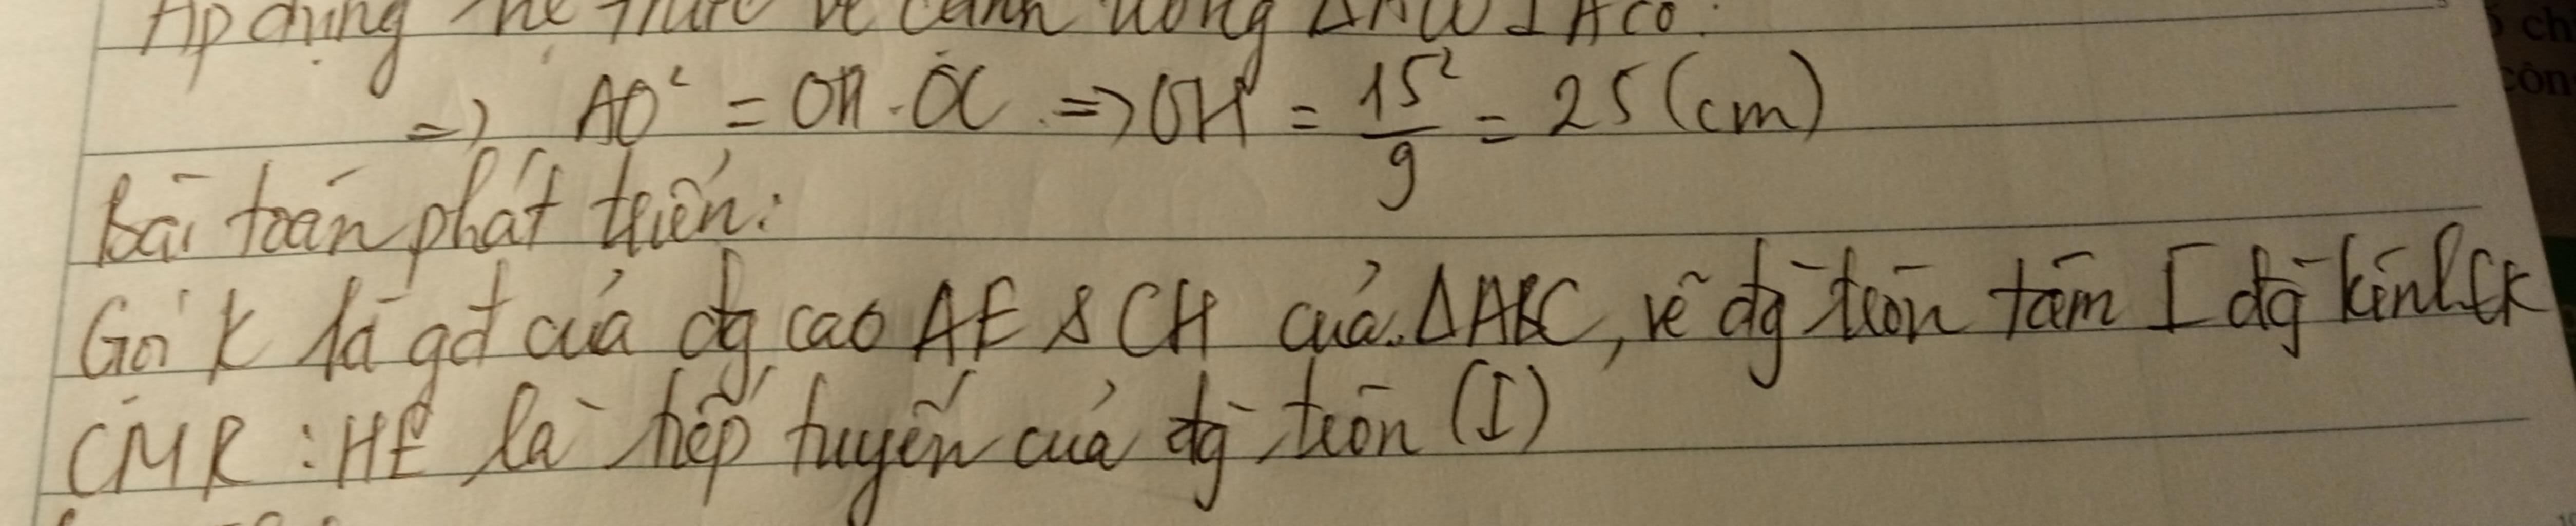 Áp dụng hệ thức về cạnh trong Δ
=> AO² = OH . OC => OH = 15²/9 = 25 (cm)
Bài toán phát triển:
Gọi K là gđ của đg cao AE & CH của ΔABC, vẽ đg tròn tâm I đg kính CK
CMR : HE là tiếp tuyến của đg tròn (I)